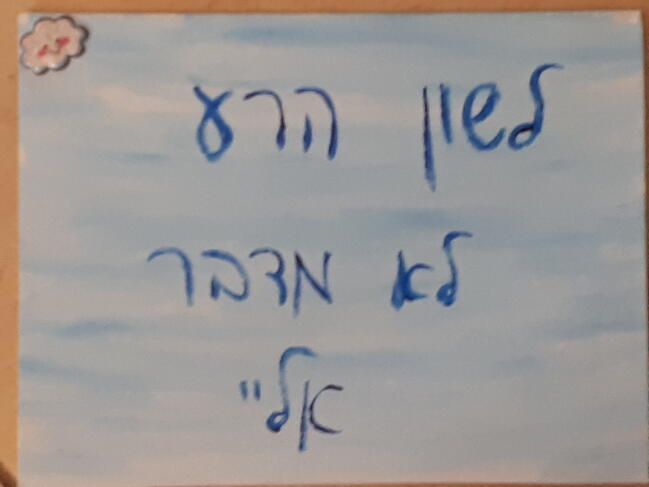 לשון הרע
לא מדבר
אליי